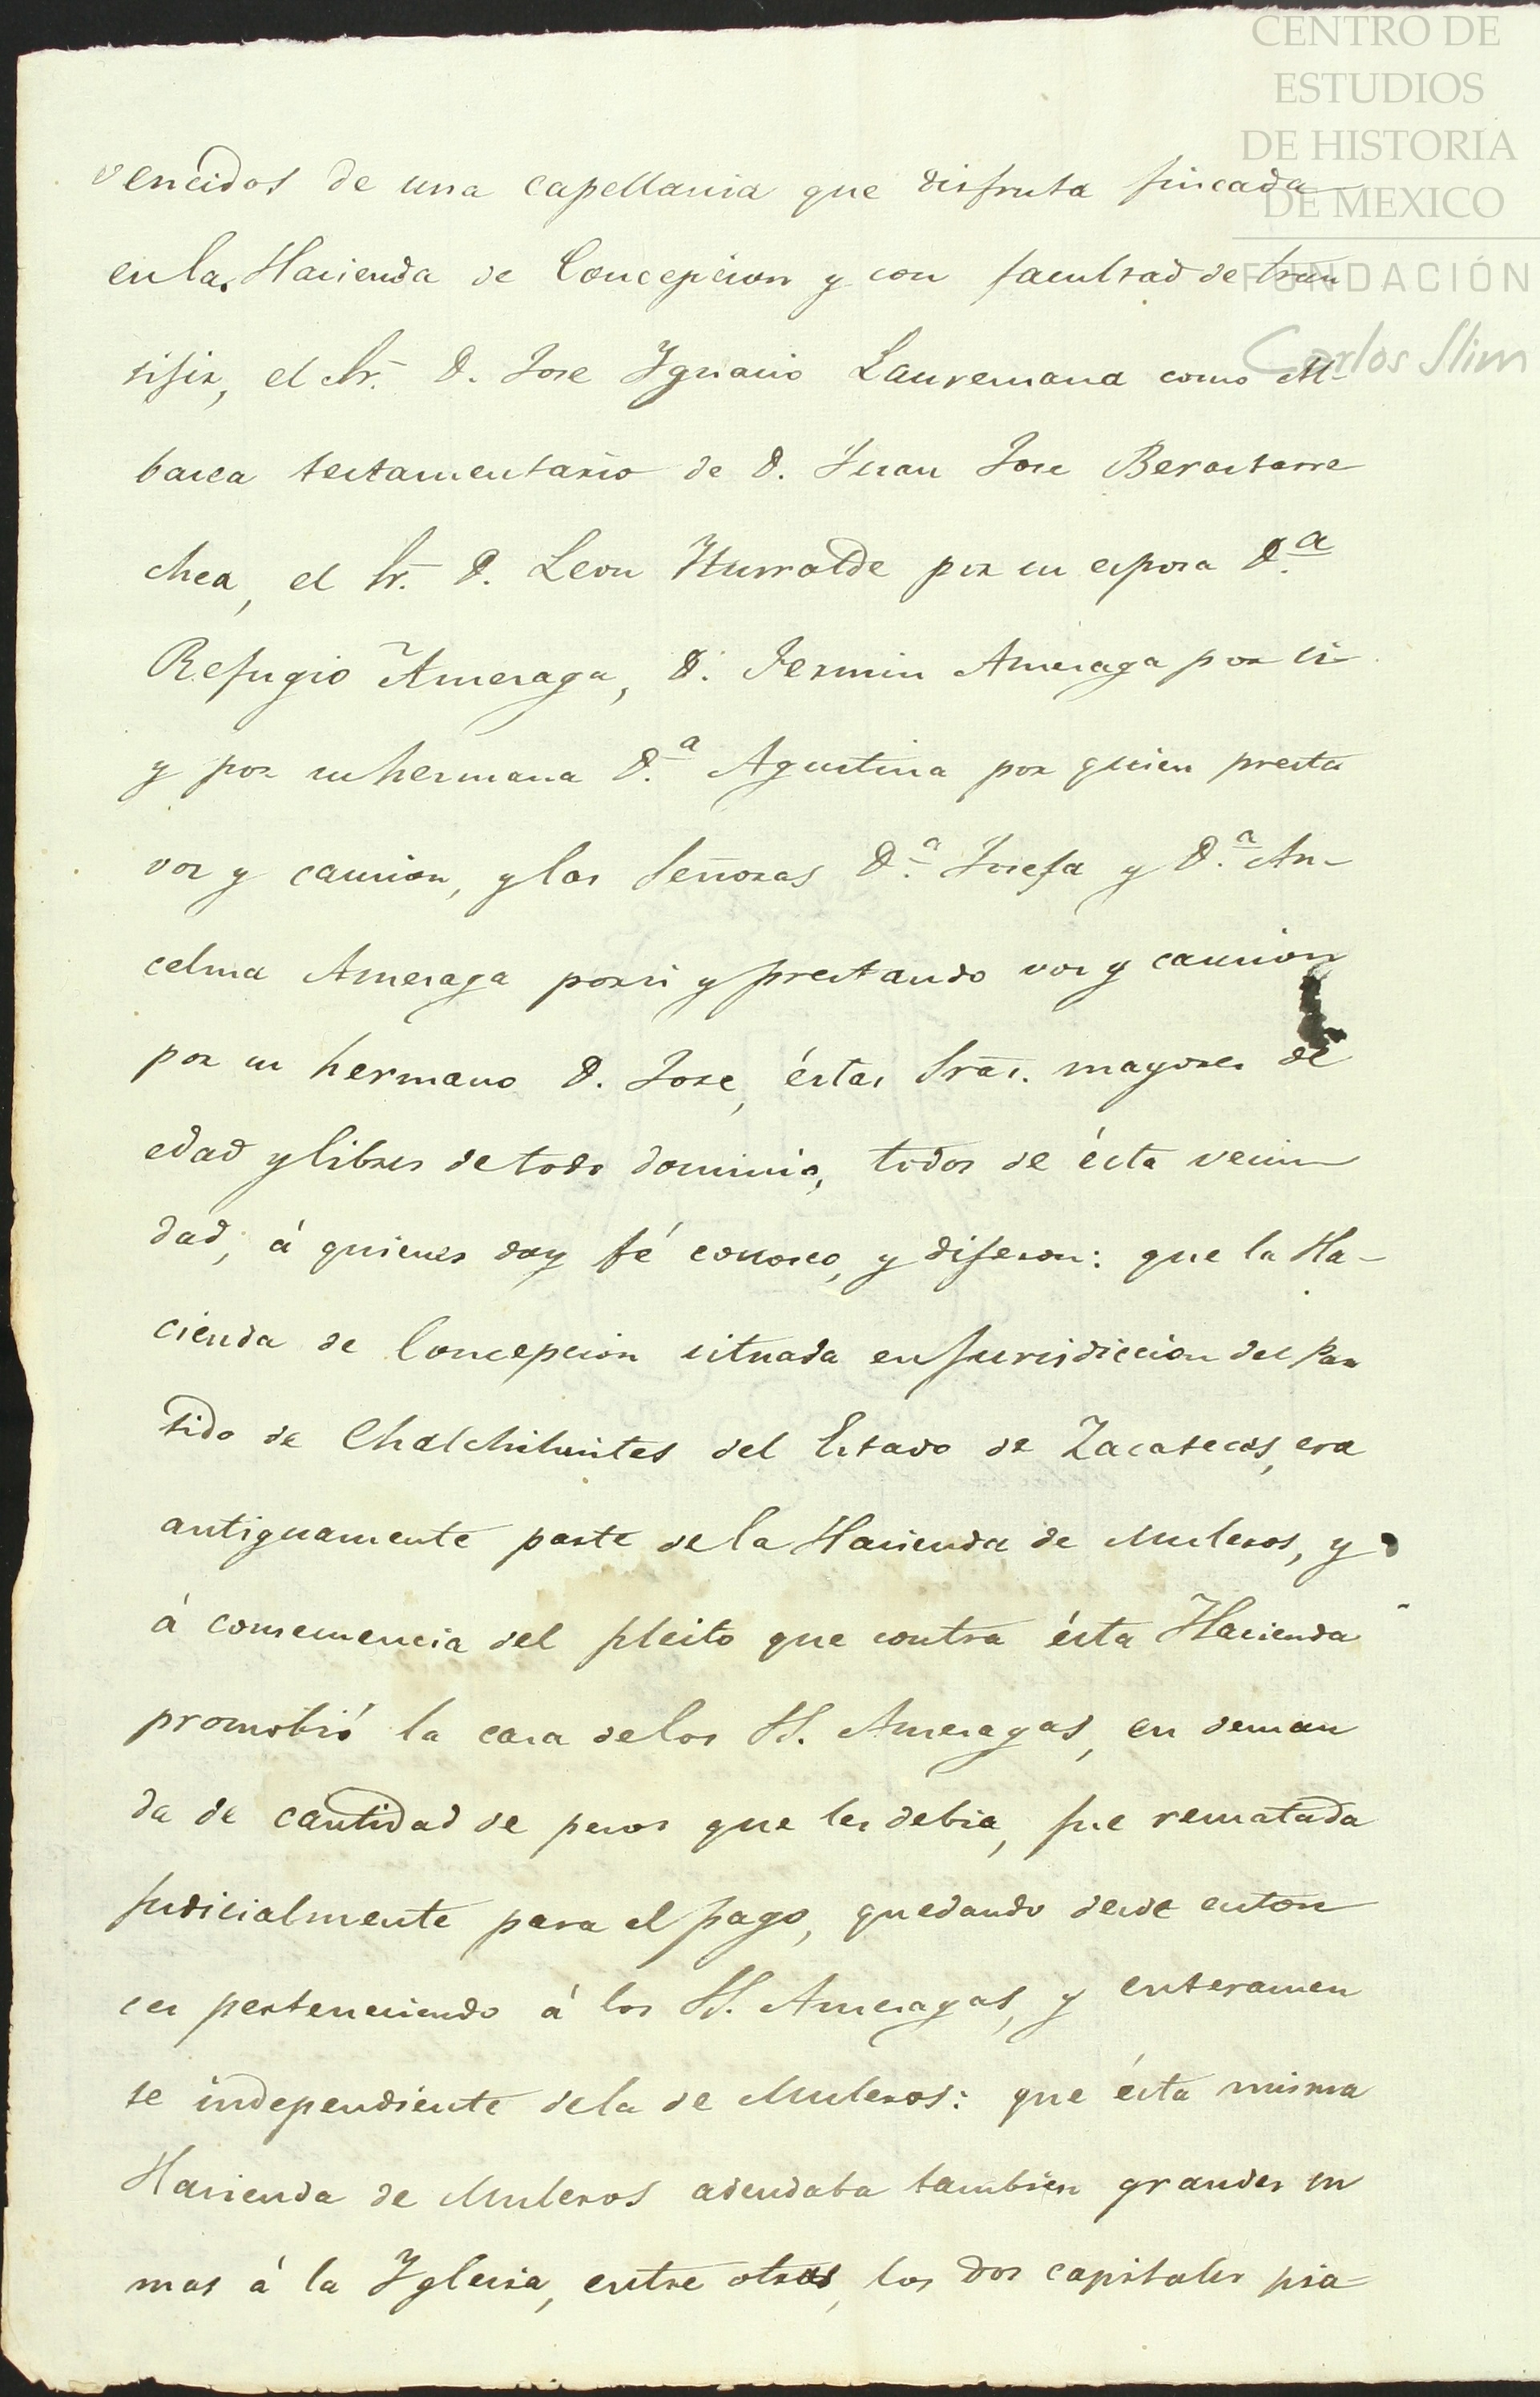 CENTRO DE
ESTUDIOS
DE HISTORIA
DE MEXICO
FUNDACIÓN
Carlos Slim
vencidos de una capellania que disfruta fincada
en la Hacienda de Concepcion y con facultad de tran
sijir, el Sr. D. Jose Ygnacio Laurenzana como Al-
bacea testamentario de D. Juan Jose Berastarre
chea, el Sr. D. Leon Yturralde por su esposa D.a
Refugio Amezaga, D. Fermin Amezaga por si
y por su hermana D.a Agustina por quien presta
voz y caucion, y las Señoras D.a Josefa y D.a An-
celma Amezaga por si y prestando voz y caucion
por su hermano D. Jose, éstas Sras. mayores de
edad y libres de todo dominio, todos de ésta vecin
dad, á quienes doy fé conosco, y dijeron: que la Ha-
cienda de Concepcion situada en jurisdiccion del Par
tido de Chalchihuites del Estado de Zacatecas, era
antiguamente parte de la Hacienda de Muleros, y
á consecuencia del pleito que contra ésta Hacienda
promobió la casa de los SS. Amezagas, en deman
da de cantidad de pesos que les debia, fue rematada
judicialmente para el pago, quedando desde enton
ces perteneciendo á los SS. Amezagas, y enteramen
te independiente de la de Muleros: que ésta misma
Hacienda de Muleros adeudaba tambien grandes su
mas á la Yglesia, entre otros, los dos capitales pia-